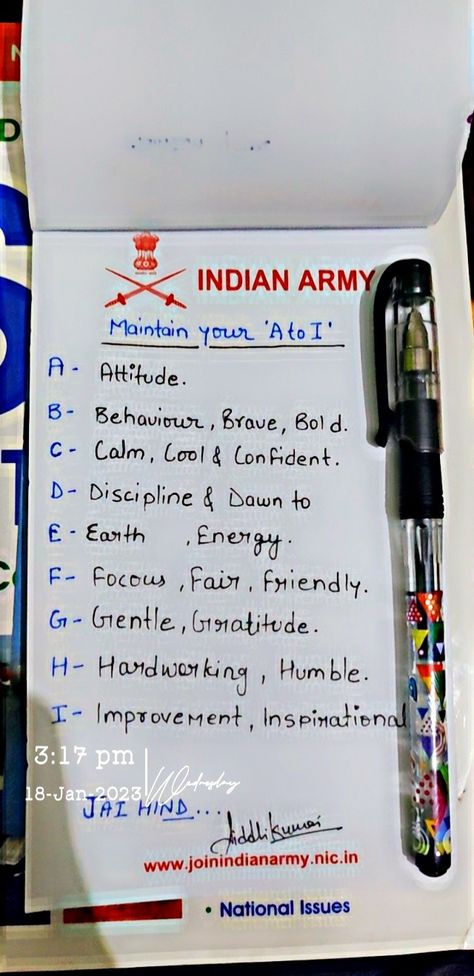 INDIAN ARMY
Maintain your 'A to I'
A - Attitude.
B - Behaviour, Brave, Bold.
C - Calm, Cool & Confident.
D - Discipline & Dawn to
E - Earth , Energy.
F - Focous , Fair, Friendly.
G - Gentle, Gratitude.
H - Hardworking, Humble.
I - Improvement, Inspirational
3:17 pm
18-Jan-2023 Wednesday
JAI HIND...
www.joinindianarmy.nic.in
• National Issues